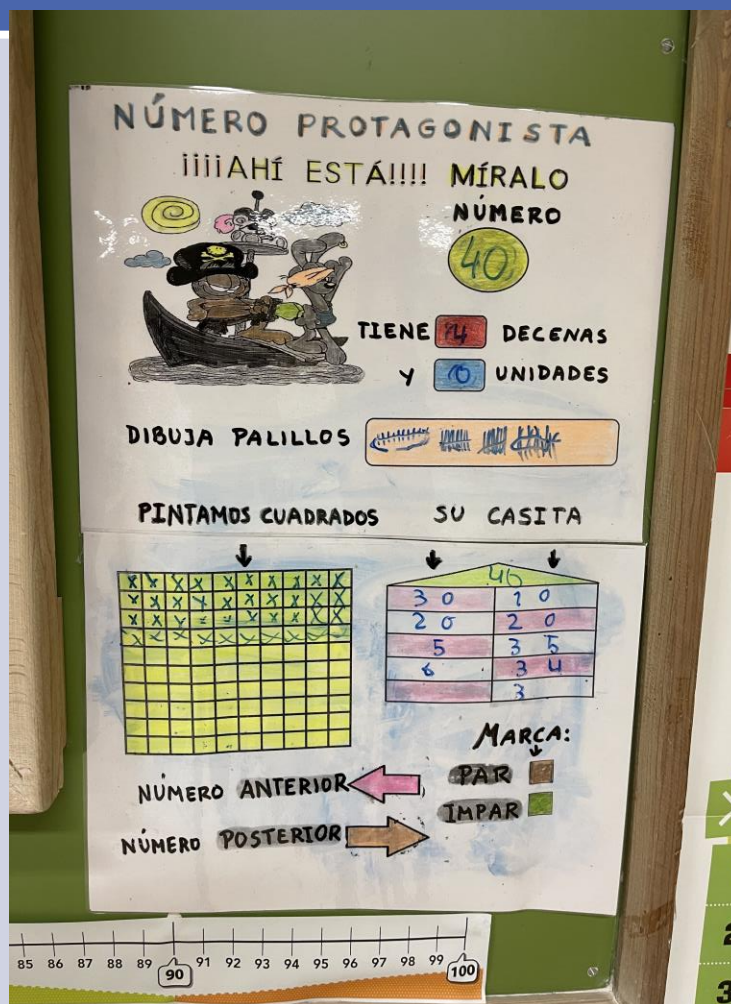 NÚMERO PROTAGONISTA
¡¡¡¡AHÍ ESTÁ!!!! MÍRALO
NÚMERO
40
TIENE 4 DECENAS
Y 0 UNIDADES
DIBUJA PALILLOS
PINTAMOS CUADRADOS SU CASITA
40
30 10
20 20
5 35
6 34
3
MARCA:
NÚMERO ANTERIOR PAR
IMPAR
NÚMERO POSTERIOR
85 86 87 88 89 90 91 92 93 94 95 96 97 98 99 100